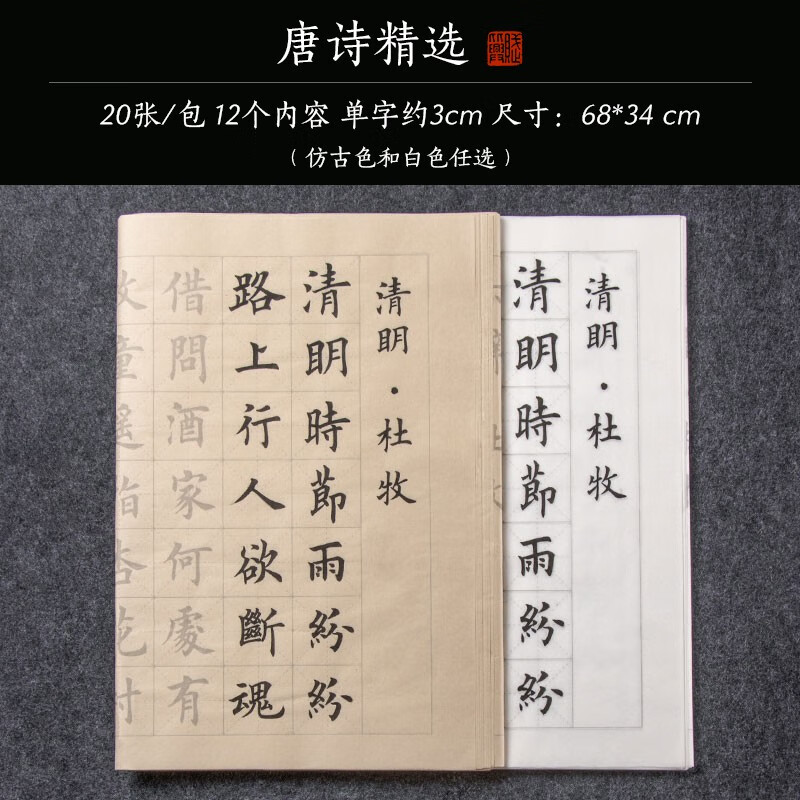 唐诗精选
20张/包 12个内容 单字约3cm 尺寸：68*34 cm
（仿古色和白色任选）
清明·杜牧
清明時節雨紛紛
路上行人欲斷魂
借問酒家何處有
牧童遥指杏花村
清明·杜牧
清明時節雨紛紛